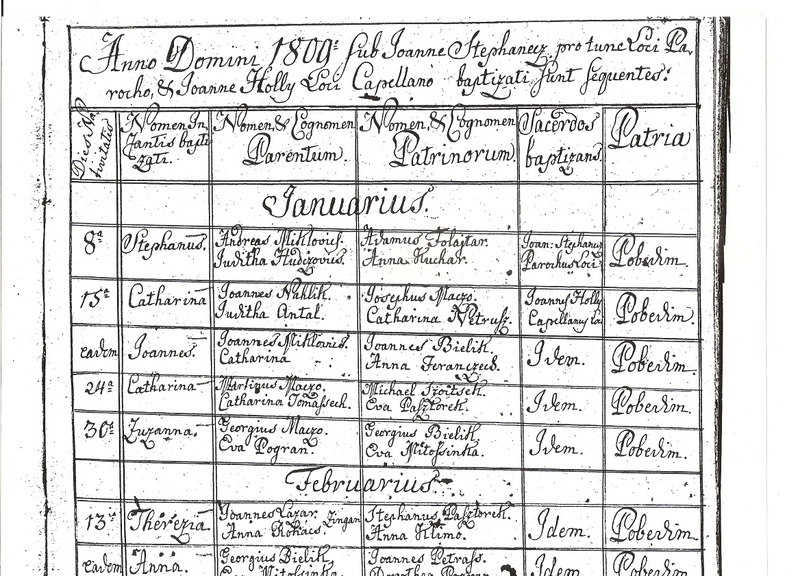 Anno Domini 1809: sub Joanne Stephanecz pro tunc Loci Pa-
rocho, & Joanne Holly Loci Capellano baptizati sunt sequentes:
Dies Na
tivitatis
Nomen In
fantis bapti
zati.
Nomen, & Cognomen
Parentum.
Nomen, & Cognomen
Patrinorum.
Sacerdos
baptizans.
Patria
Januarius.
8a
Stephanus.
Andreas Miklovics.
Juditha Hudczovics.
Adamus Folajtar.
Anna Kuchar.
Joan: Stephanecz
Parochus Loci
Pobedim.
15a
Catharina
Joannes Nuhlik.
Juditha Antal.
Josephus Maczo.
Catharina Petrusz.
Joannes Holly
Capellanus Loci
Pobedim.
eadem
Joannes.
Joannes Miklovics.
Catharina
Joannes Bielik.
Anna Feranczech.
Idem.
Pobedim.
24a
Catharina
Martinus Maczo.
Catharina Tomasseck.
Michael
Eva Pasztorek.
Idem.
Pobedim.
30a
Zuzanna.
Georgius Maczo.
Eva Pogran.
Georgius Bielik
Eva Mitossinka.
Idem.
Pobedim.
Februarius.
13a
Therezia
Joannes Lazar.
Anna Kovacs. Zingari
Stephanus Pasztorek.
Anna Klimo.
Idem.
Pobedim
eadem
Anna.
Georgius Bielik
Eva Mitossinka
Joannes Petrass.
Dorothea
Idem
Pobedim